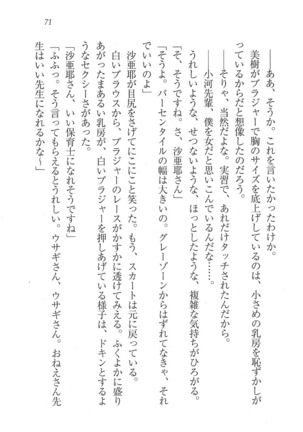 71
――ああ、そうか。これを言いたかったわけか。
美樹がブラジャーで胸のサイズを底上げしているのは、小さめの乳房を恥ずかしが
っているからだと想像したのだろう。
――そりゃ、当然だよな。実習で、あれだけタッチされたんだから。
――小河先輩、僕を女だと思いこんでいるんだな……。
うれしいような、せつないような、ほっとしたような、複雑な気持ちがひろがる。
「そうよ。パーセンタイルの幅は大きいの。グレーゾーンからはずれてなきゃ、それ
でいいのよ」
「そ、そうですね。さ、沙亜耶さん」
沙亜耶が目尻をさげてにこにこと笑った。もう、スカートは元に戻っている。
白いブラウスから、ブラジャーのレースがかすかに透けてみえる。ふくよかに盛り
あがったまあるい乳房が、白いブラジャーを押しあげている様子は、ドキンとするよ
うなセクシーさがあった。
「沙亜耶さん、いい保育士になれそうですね」
「ふふっ。そう言ってもらえるとうれしいな。ウサギさん、ウサギさん。おねえさん先
生はいい先生になれるかな～」